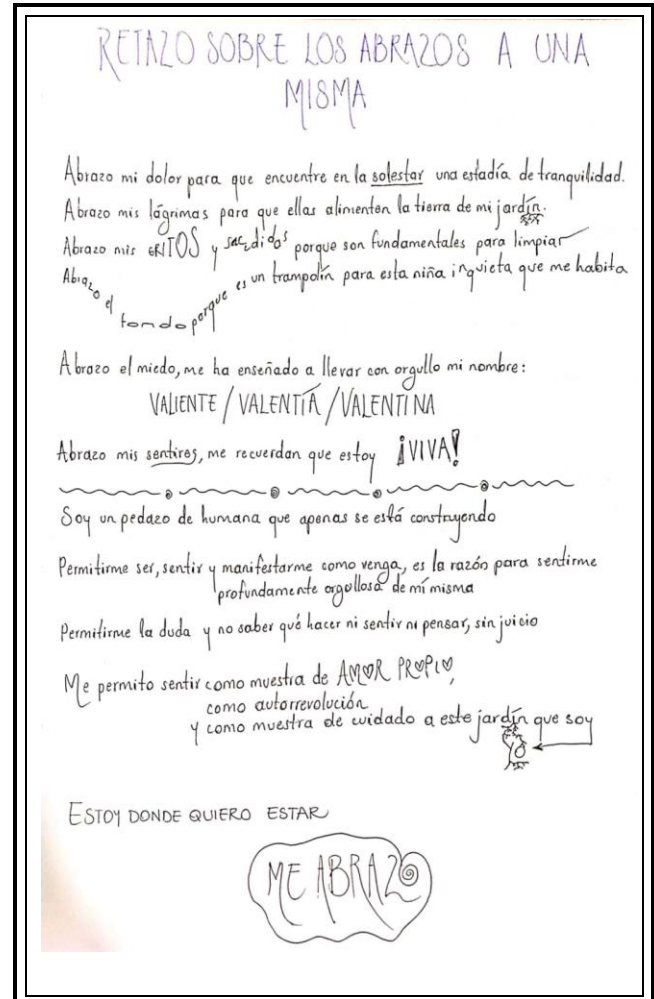 RETAZO SOBRE LOS ABRAZOS A UNA
MISMA
Abrazo mi dolor para que encuentre en la solestar una estadía de tranquilidad.
Abrazo mis lágrimas para que ellas alimenten la tierra de mi jardín.
Abrazo mis GRITOS y sacudidos porque son fundamentales para limpiar
Abrazo el fondo porque es un trampolín para esta niña inquieta que me habita
Abrazo el miedo, me ha enseñado a llevar con orgullo mi nombre:
VALIENTE / VALENTÍA / VALENTINA
Abrazo mis sentires, me recuerdan que estoy ¡VIVA!
Soy un pedazo de humana que apenas se está construyendo
Permitirme ser, sentir y manifestarme como venga, es la razón para sentirme
profundamente orgullosa de mí misma
Permitirme la duda y no saber qué hacer ni sentir ni pensar, sin juicio
Me permito sentir como muestra de AMOR PROPIO,
como autorrevolución
y como muestra de cuidado a este jardín que soy
YO
ESTOY DONDE QUIERO ESTAR
ME ABRAZO